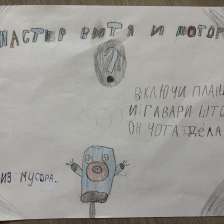 МАСТЕР ВИТЯ И МОТОР
ВКЛЮЧИ ПЛАН
И ГАВАРИ ШТО
ОН ЧОТА ДЕЛА
ИЗ МУСОРА.